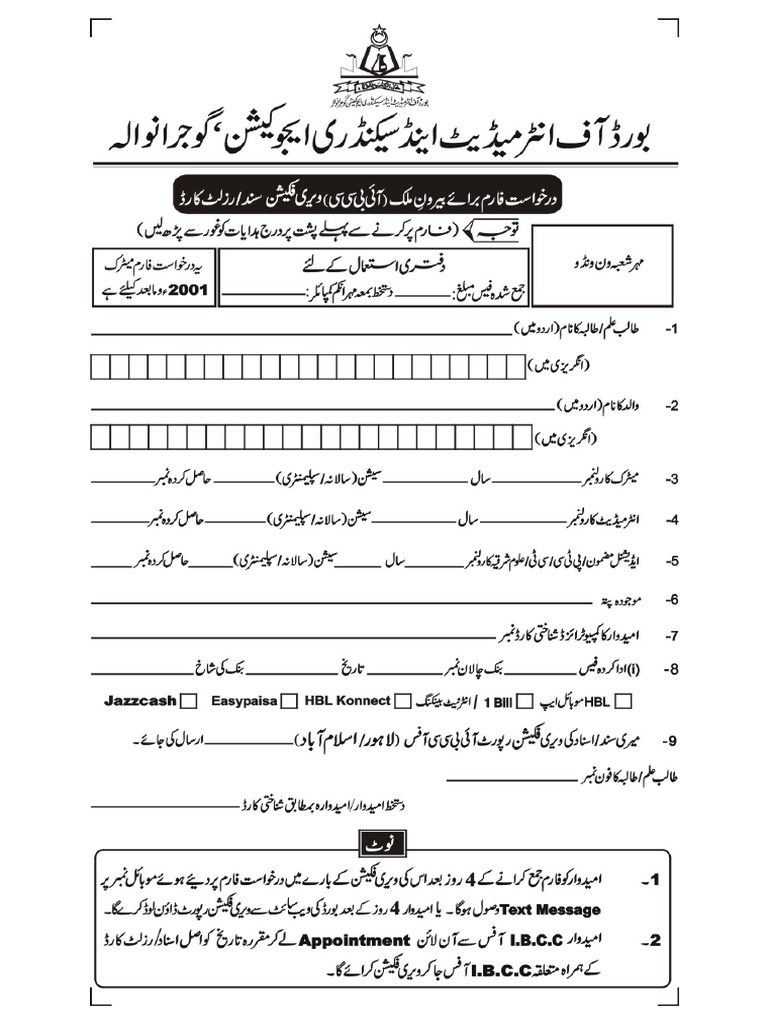 بورڈ آف انٹرمیڈیٹ اینڈ سیکنڈری ایجوکیشن گوجرانوالہ
بورڈ آف انٹرمیڈیٹ اینڈ سیکنڈری ایجوکیشن، گوجرانوالہ
درخواست فارم برائے بیرونِ ملک (آئی بی سی سی) ویری فکیشن سند/رزلٹ کارڈ
توجہ (فارم پر کرنے سے پہلے پشت پر درج ہدایات کو غور سے پڑھ لیں)
مہر شعبہ ون ونڈو
دفتری استعمال کے لئے
جمع شدہ فیس مبلغ: ________ دستخط بمعہ مہر انکم کمپائلر: ________
یہ درخواست فارم میٹرک
2001ء و ما بعد کیلئے ہے
1- طالب علم/طالبہ کا نام (اردو میں) ________
(انگریزی میں)
2- والد کا نام (اردو میں) ________
(انگریزی میں)
3- میٹرک کا رولنمبر ________ سال ________ سیشن (سالانہ/سپلیمنٹری) ________ حاصل کردہ نمبر ________
4- انٹرمیڈیٹ کا رولنمبر ________ سال ________ سیشن (سالانہ/سپلیمنٹری) ________ حاصل کردہ نمبر ________
5- ایڈیشنل مضمون/پی ٹی سی/سی ٹی/علوم شرقیہ کا رولنمبر ________ سال ________ سیشن (سالانہ/سپلیمنٹری) ________ حاصل کردہ نمبر ________
6- موجودہ پتہ ________
7- امیدوار کا کمپیوٹرائزڈ شناختی کارڈ نمبر ________
8- (i) ادا کردہ فیس ________ بنک چالان نمبر ________ تاریخ ________ بنک کی شاخ ________
HBL موبائل ایپ □ 1 Bill / انٹرنیٹ بینکنگ □ HBL Konnect □ Easypaisa □ Jazzcash □
9- میری سند/اسناد کی ویری فکیشن رپورٹ آئی بی سی سی آفس (لاہور/اسلام آباد) ________ ارسال کی جائے۔
طالب علم/طالبہ کا فون نمبر ________
دستخط امیدوار/امیدوارہ بمطابق شناختی کارڈ ________
نوٹ
1۔ امیدوار کو فارم جمع کرانے کے 4 روز بعد اس کی ویری فکیشن کے بارے میں درخواست فارم پر دیئے ہوئے موبائل نمبر پر
Text Message وصول ہوگا۔ یا امیدوار 4 روز کے بعد بورڈ کی ویب سائٹ سے ویری فکیشن رپورٹ ڈاؤن لوڈ کرے گا۔
2۔ امیدوار I.B.C.C آفس سے آن لائن Appointment لے کر مقررہ تاریخ کو اصل اسناد/رزلٹ کارڈ
کے ہمراہ متعلقہ I.B.C.C آفس جا کر ویری فکیشن کرائے گا۔